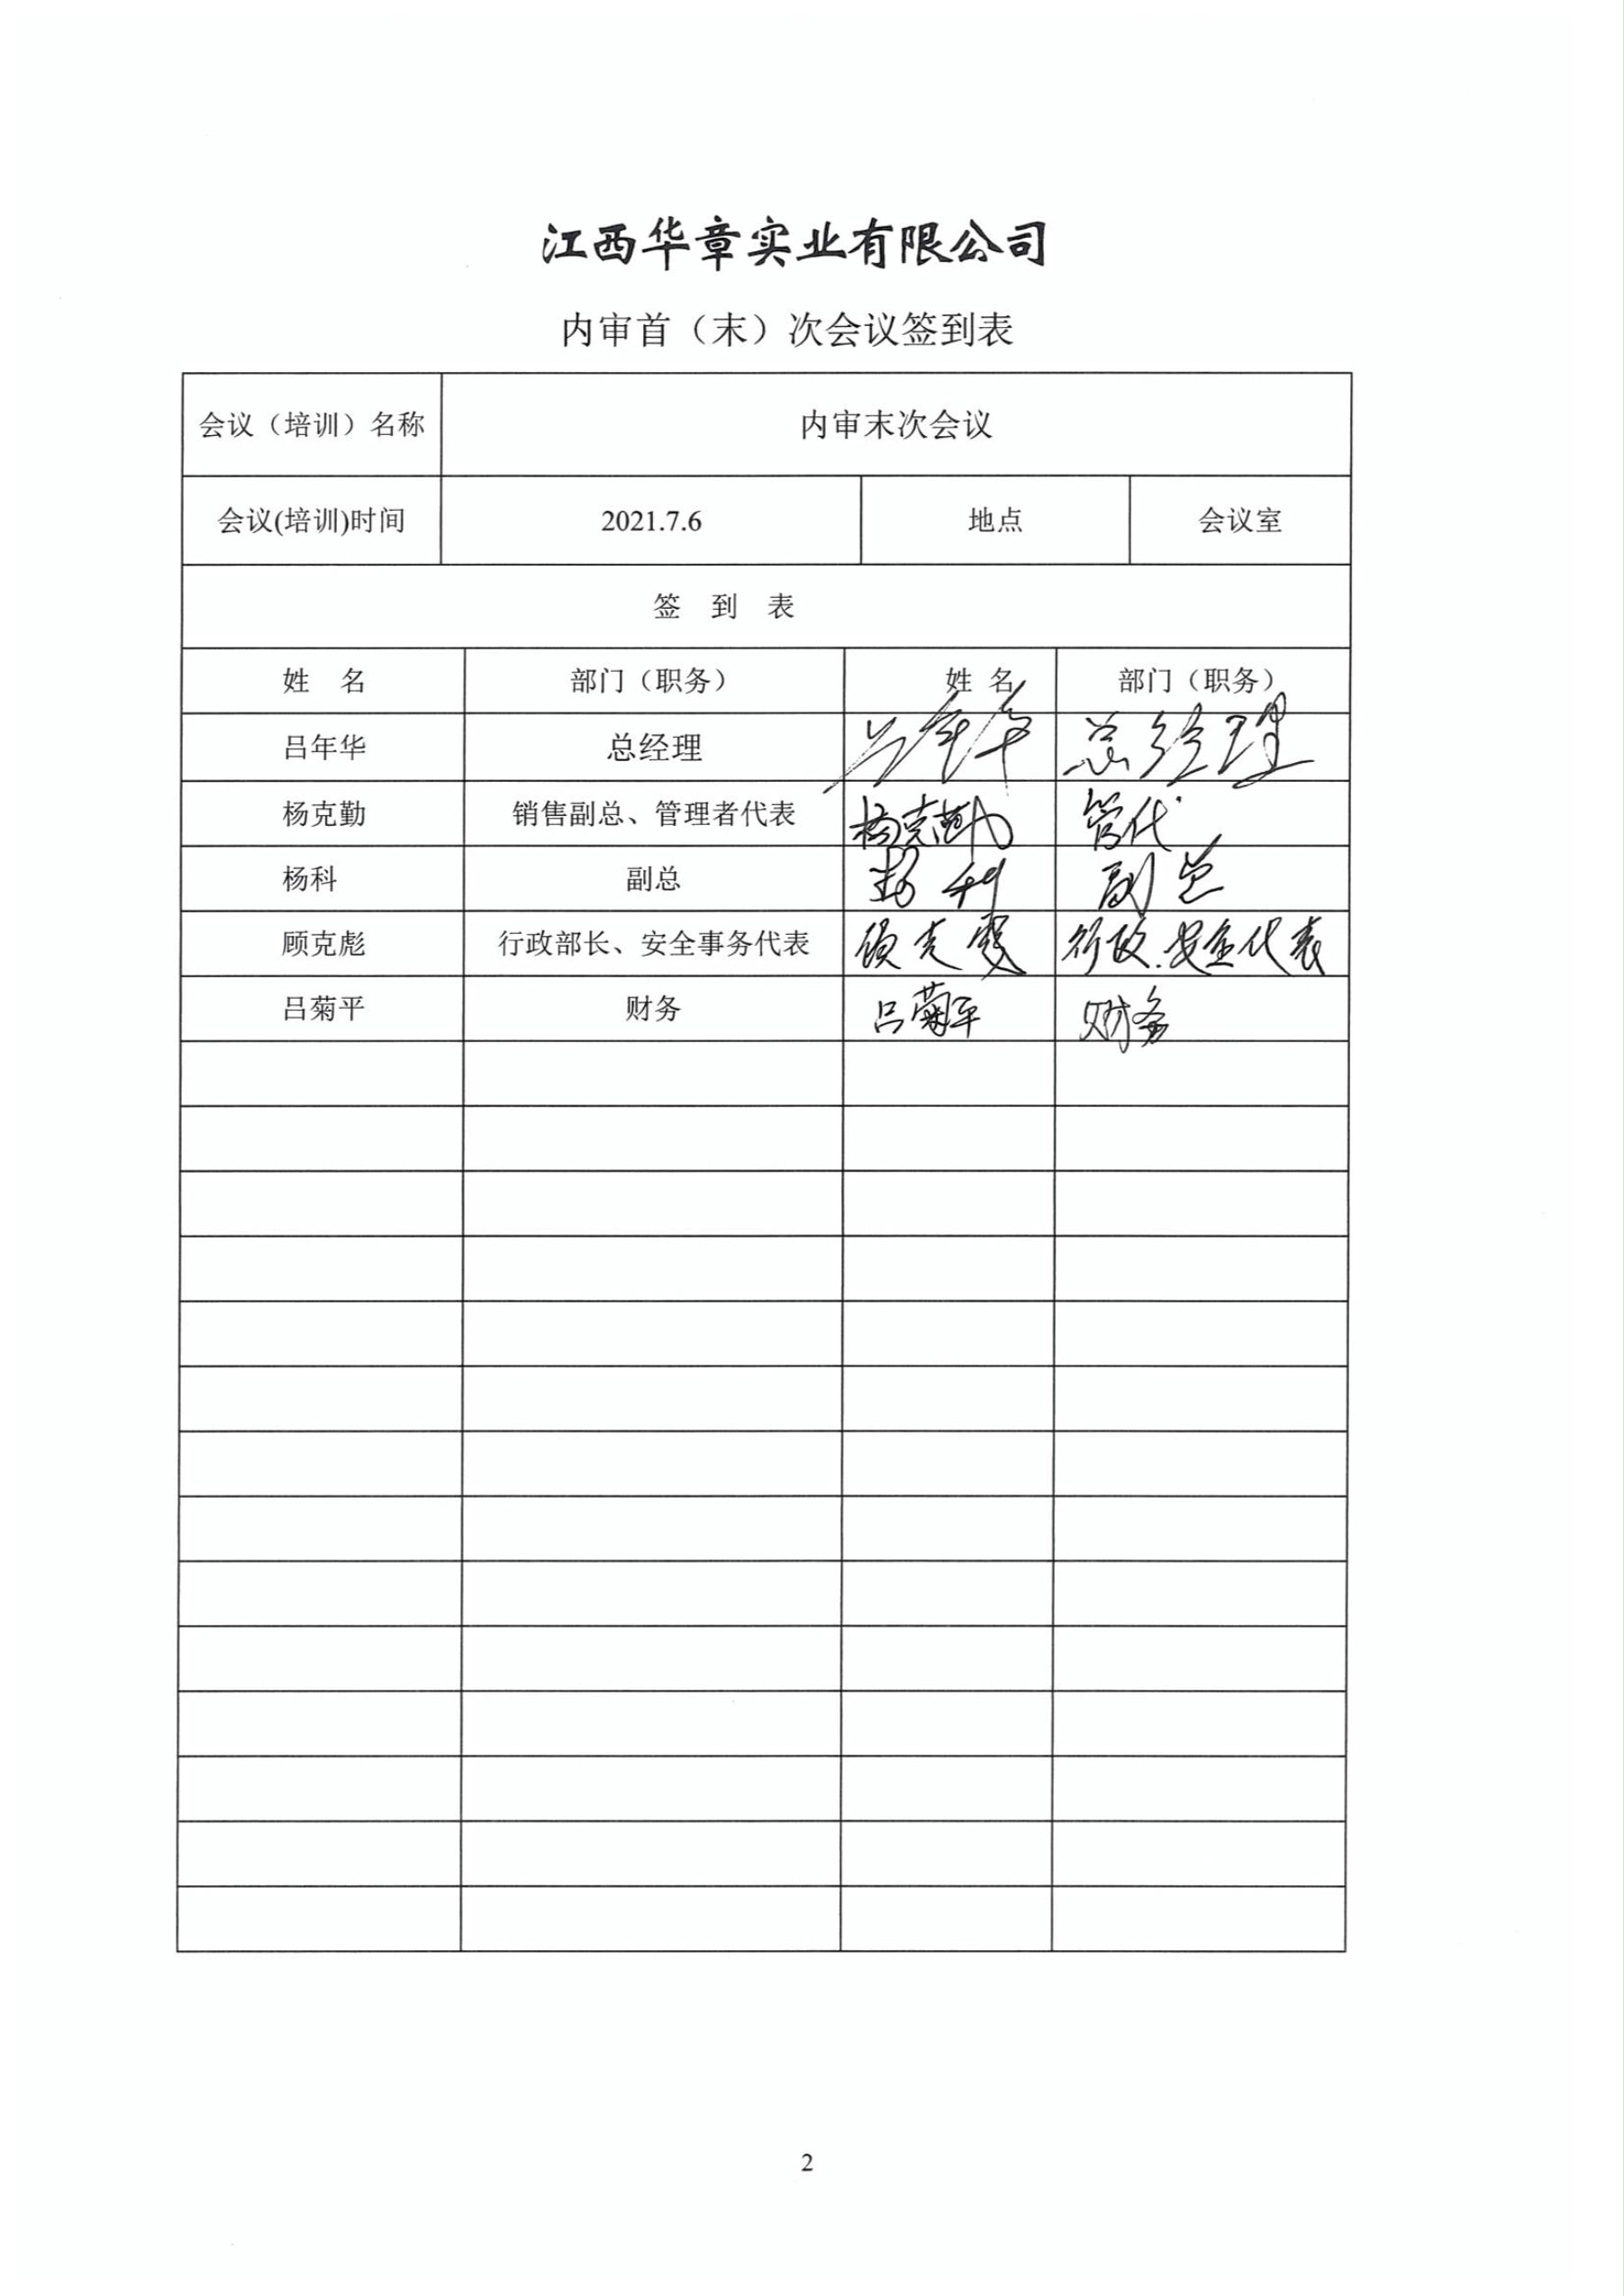 江西华章实业有限公司
内审首（末）次会议签到表
会议（培训）名称 内审末次会议
会议(培训)时间 2021.7.6 地点 会议室
签 到 表
姓 名 部门（职务） 姓 名 部门（职务）
吕年华 总经理 吕年华 总经理
杨克勤 销售副总、管理者代表 杨克勤 管代
杨科 副总 杨科 副总
顾克彪 行政部长、安全事务代表 顾克彪 行政.安全代表
吕菊平 财务 吕菊平 财务
2